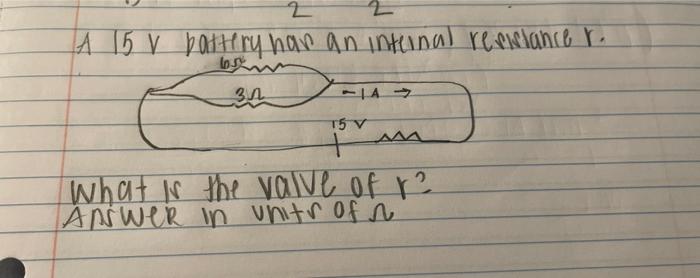 2 2
A 15 V battery has an internal resistance r.
6Ω
3Ω
- 1 A →
15 V
What is the value of r?
Answer in units of Ω